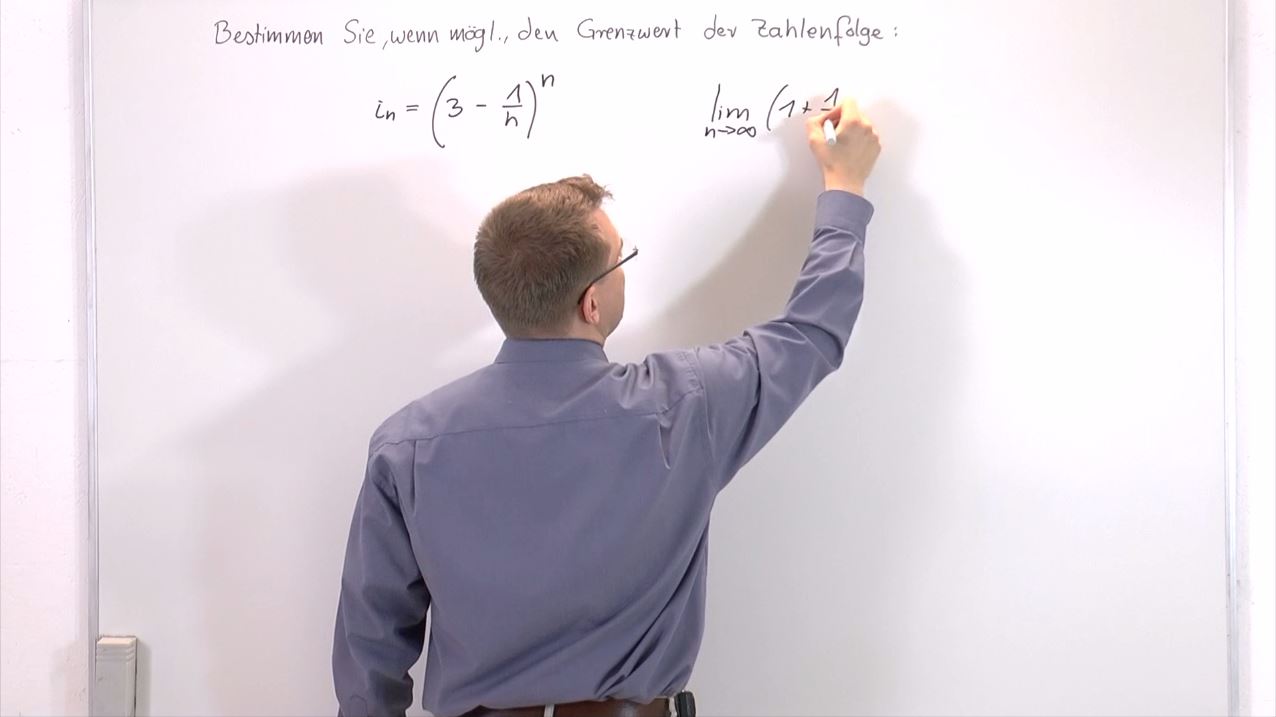 Bestimmen Sie, wenn mögl., den Grenzwert der Zahlenfolge :
i_n = (3 - 1/n)^n lim n→∞ (1 + 1